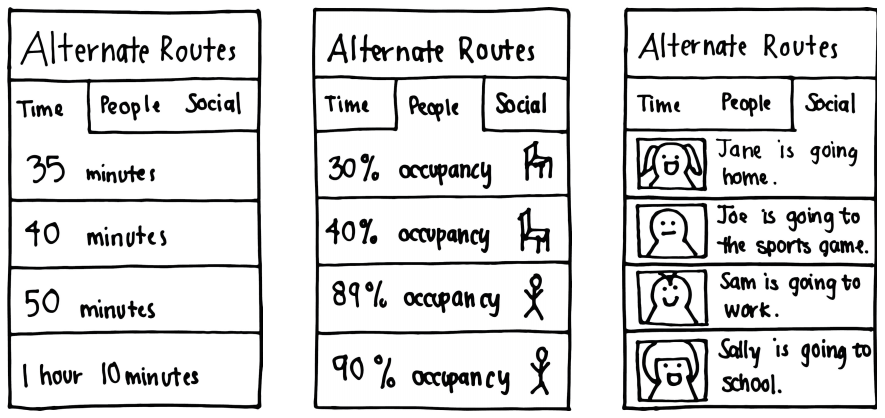 Alternate Routes
Time People Social
35 minutes
40 minutes
50 minutes
1 hour 10 minutes
Alternate Routes
Time People Social
30% occupancy
40% occupancy
89% occupancy
90% occupancy
Alternate Routes
Time People Social
Jane is going
home.
Joe is going to
the sports game.
Sam is going to
work.
Sally is going to
school.